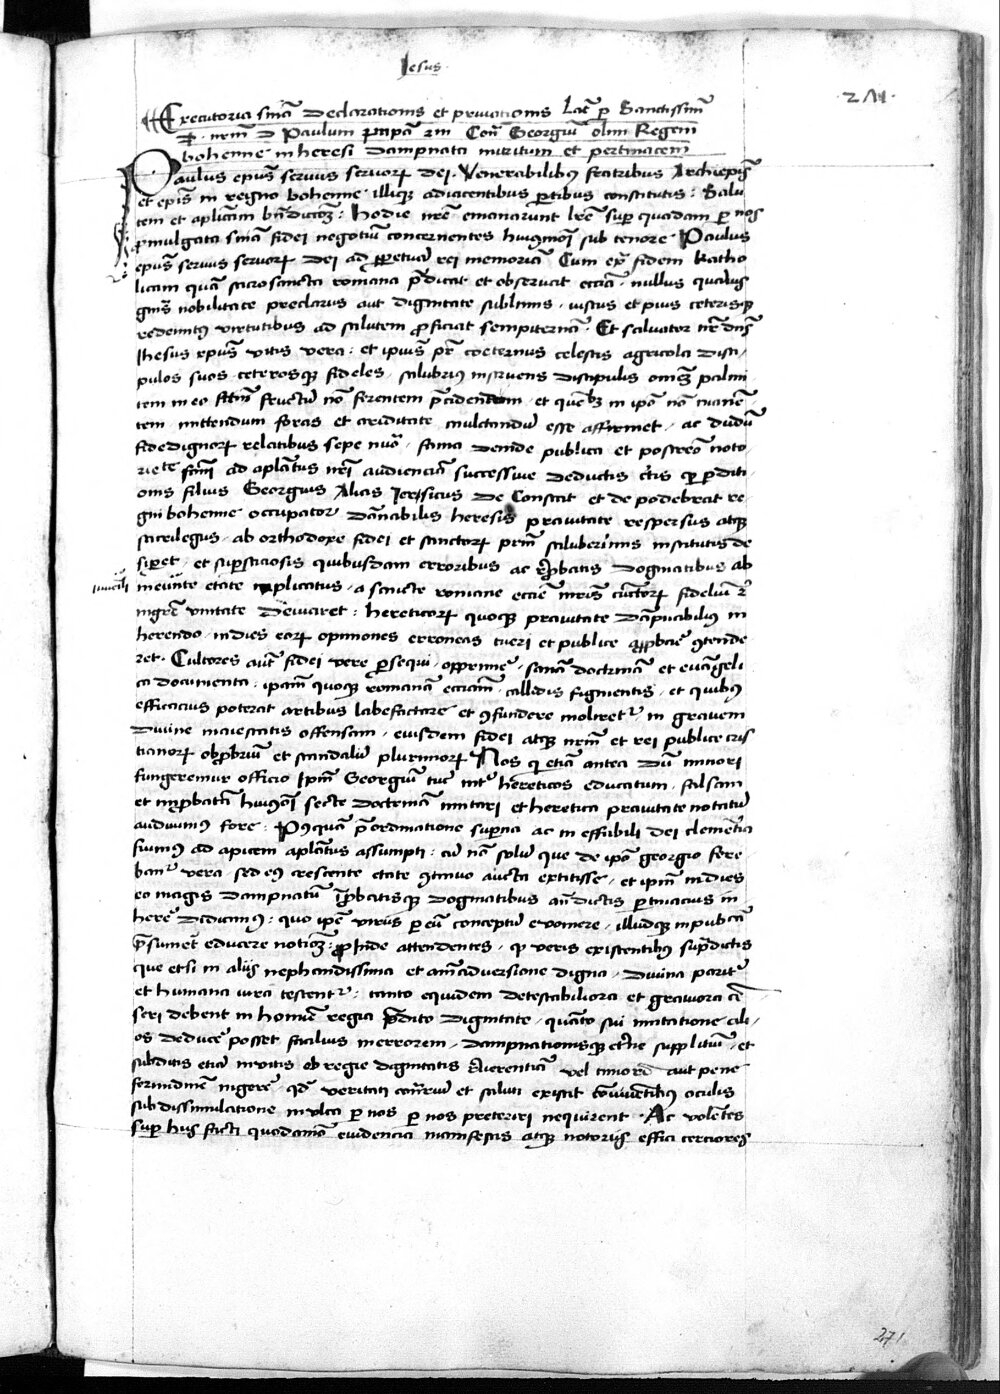 Jesus
271
Executoria sniã Declarationis et privationis Lat̃ p̱ Sanctissimũ
p̃. nrm̃ D Paulum papã 2m Con̄ Georgiũ olim Regem
bohemie in heresi Dampnata nutritum et pertinacem
Paulus ep̃us servus servoꝝ dei. Venerabilibus fratribus Archiep̃is
et ep̃is in regno bohemie illiq̨ adiacentibus p̱tibus constitutis: Salu
tem et aplicam bñdictõꝫ: Hodie nr̃e emanarunt lr̃e sup̱ quadam p̱ nos
p̱mulgata sniã fidei negotiũ concernentes huiusmõi sub tenore Paulus
ep̃us servus servoꝝ Dei ad p̱petuã rei memoriã Cum ex̃ fidem katho
licam quã sacrosancta romana p̃dicat et observat ecc̃ia. nullus qualibꝫ
gñis nobilitate preclarus aut dignitate sublimis. iustus et pius ceterisq̨
redemitus virtutibus ad salutem p̱ficiat sempiternã. Et salvator nr̃ dñs
Jhesus xp̃us vitis vera: et ipsius pr̃ coeternus celestis agricola disci
pulos suos ceterosq̨ fideles. salubrius instruens discipulis omẽ palmi
tem in eo fructũ nõ ferentem p̃cidendum. et quẽlibꝫ in ipõ nõ manẽ
tem. mittendum foras et ariditate mulctandũ esse affirmet. ac dudũ
fidedignoꝝ relatibus sepe nũo. fama deinde publica et postremo noto
riete facti ad aplatus nr̃i audienciã successive deductis &c̃is ꝙ p̱diti
onis filius Georgius Alias Jersicus de Constat et de podebrat re
gni bohemie occupator Dãnabilis heresis pravitate respersus atq̨
sacrilegus. ab orthodoxe fidei et sanctoꝝ prm̃ saluberimis institutis de
sip̱et. et superstitiosis quibusdam erroribus ac rep̱batis Dogmatibus ab
ineunte etate implicatus. a sancte romane ecc̃ie mr̃is cũctoꝝ fidelium 2̃
mgr̃e unitate Deviaret: hereticoꝝ quoq̨ pravitate Dãpnabilius in
herendo. indies eoꝝ opiniones erroneas tueri et publice app̱bare 9tende
ret. Cultores aut̃ fidei vere p̱sequi. opprimẽ. sanã doctrinã et evãgeli
ca documenta. ipam quoq̨ romanã ecc̃iam. callidis figmentis. et quibus
efficacius poterat artibus labefactare et 9fundere moliret̃ in gravem
Divine maiestatis offensam. eiusdem fidei atq̨ nrm̃ et rei publice cris
tianoꝝ obp̱brium et scandalũ plurimoꝝ Nos q̃ etiã antea Dũ minori
fungeremur officio Ipm̃ Georgium tũc int̃ hereticos educatum. falsam
et imp̱batã huiusmõi secte doctrinã imitari et heretica pravitate notatũ
audivimus fore. Postquã p̃ordinatione superna ac in effabili dei clemẽtia
fuimus ad apicem aplatus assumpti: cũ nõ solũ que de ipo georgio fere
bant̃ vera. sed eius crescente etate 9tinuo aucta extitisse. et ipm̃ indies
eo magis Dampnatũ rep̱batisq̨ Dogmatibus an̄dictis p̱tinacius in
herẽ Didicimus: quo ipẽ virus p̱ eũ conceptũ evomere. illudq̨ in publicã
p̃sumeret educere notitiã: p̱inde attendentes. ꝙ veris existentibus sup̱dictis
que etsi in aliis nephandissima et animadversione digna. Divina parit̃
et humana iura testent̃: tanto equidem detestabiliora et graviora cẽ
seri debent in homiẽ regia p̃dito Dignitate. quãto sui imitatione ali
os deducẽ posset facilius in errorem. Dampnationisq̨ et̃ne suppliciũ. et
subditis etiã invitis ob regie dignitatis reverentiã vel timorẽ aut pene
formidinẽ ingerẽ. qd̃ veritati contrariũ et saluti existat conniventibus oculis
sub dissimulatione in ulla p̱ nos p̱ nos preteriri nequirent. Ac volẽtes
sup̱ huius facti quodãmõ evidencia manifestis atq̨ notoriis effici cerciores
271